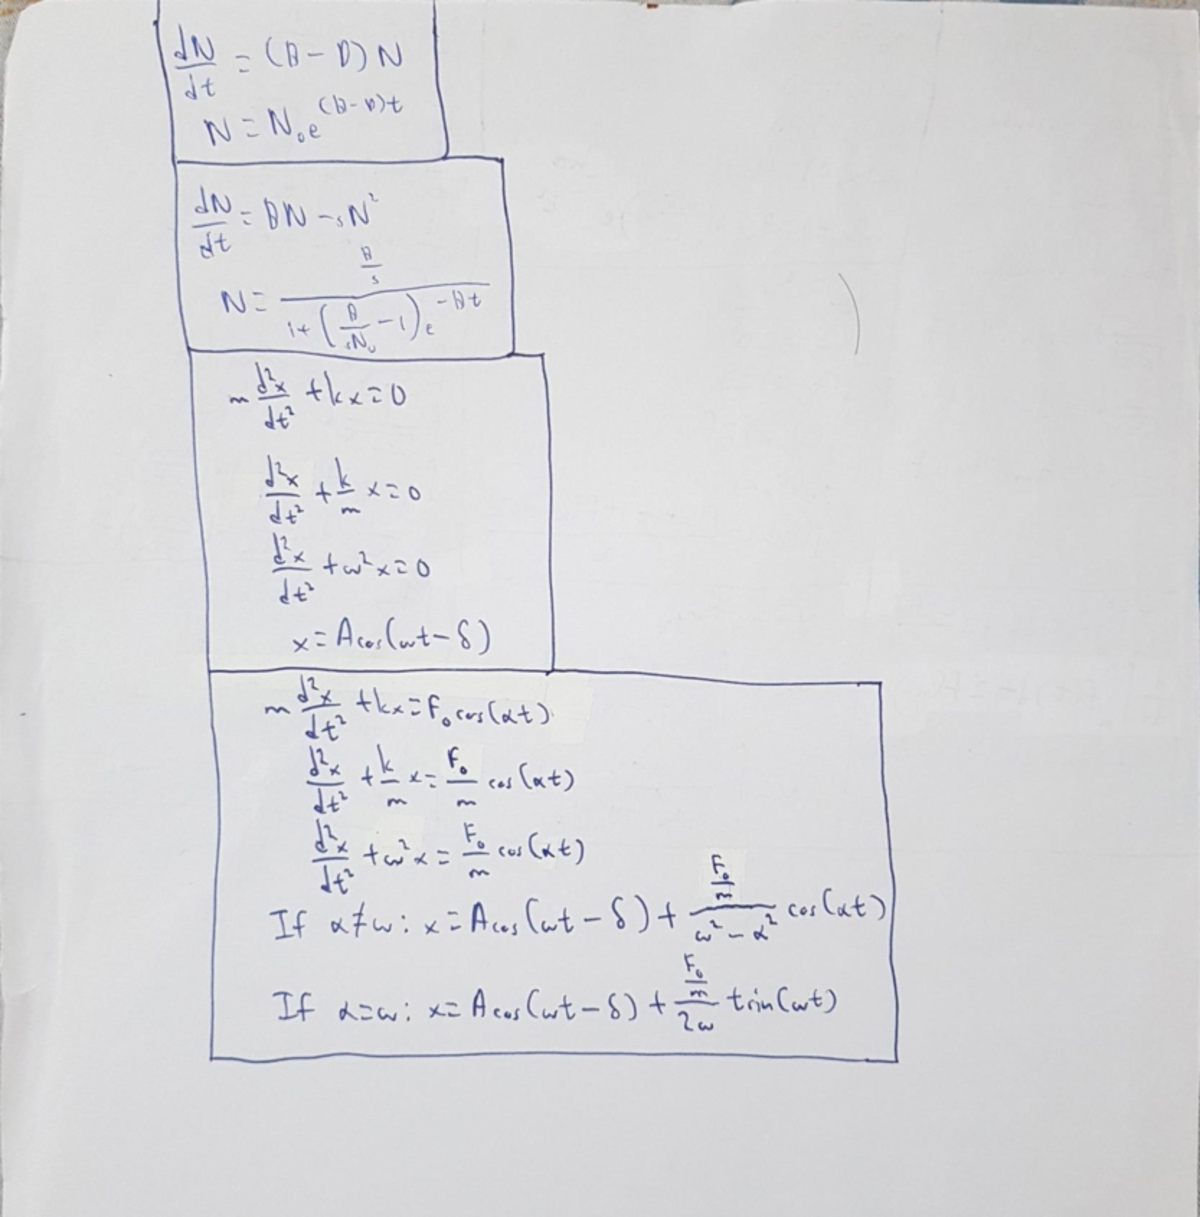 dN/dt = (B - D) N
N = N₀e^(B-D)t
dN/dt = BN - sN²
N = (B/s)/(1 + (B/(sN₀) - 1)e^(-Bt))
m d²x/dt² + kx = 0
d²x/dt² + k/m x = 0
d²x/dt² + ω²x = 0
x = A cos(ωt - δ)
m d²x/dt² + kx = F₀ cos(αt)
d²x/dt² + k/m x = F₀/m cos(αt)
d²x/dt² + ω²x = F₀/m cos(αt)
If α ≠ ω: x = A cos(ωt - δ) + (F₀/m)/(ω² - α²) cos(αt)
If α = ω: x = A cos(ωt - δ) + (F₀/m)/(2ω) t sin(ωt)